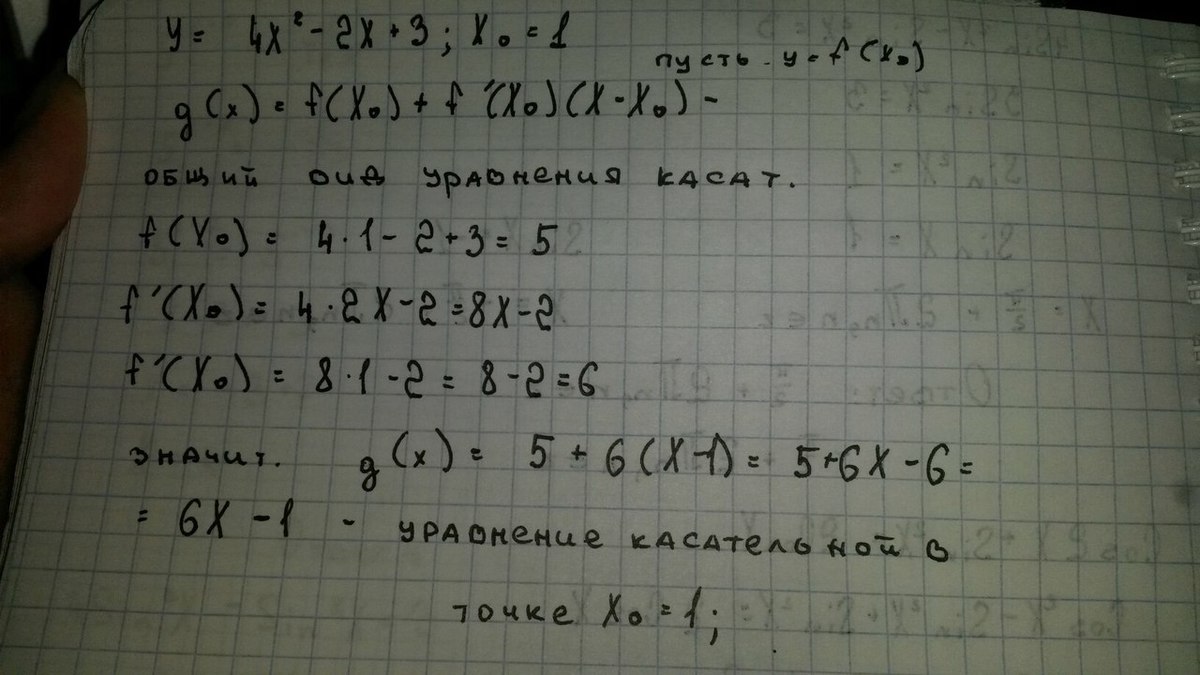 y = 4x² - 2x + 3 ; x₀ = 1
пусть - y = f(x₀)
g(x) = f(x₀) + f'(x₀)(x - x₀) -
общий вид уравнения касат.
f(x₀) = 4·1 - 2 + 3 = 5
f'(x₀) = 4·2x - 2 = 8x - 2
f'(x₀) = 8·1 - 2 = 8 - 2 = 6
значит. g(x) = 5 + 6(x - 1) = 5 + 6x - 6 =
= 6x - 1 - уравнение касательной в
точке x₀ = 1;